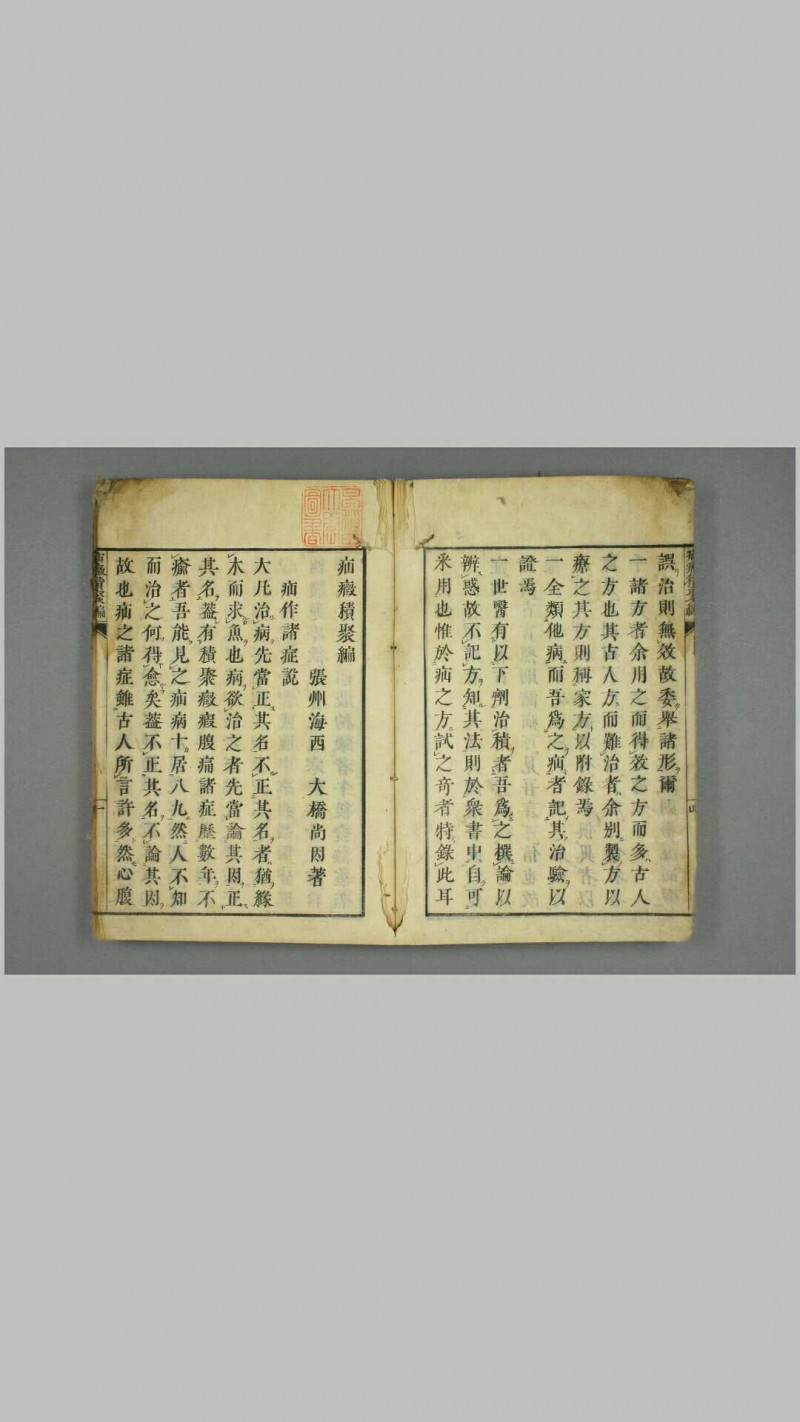 誤治則無效故委舉諸形爾
一諸方者余用之而得效之方而多古人
之方也其古人方而難治者余別製方以
療之其方則稱家方以附錄焉
一全類他病而吾爲之疝者記其治驗以
證焉
一世醫有以下劑治積者吾爲之撰論以
辨惑故不記方知其法則於衆書中自可
釆用也惟於疝之方試之奇者特錄此耳
疝癥積聚編
張州海西 大橋尚因著
疝作諸症說
大凡治病先當正其名不正其名者猶緣
木而求魚也病欲治之者先當論其因正
其名蓋有積聚癥瘕腹痛諸症歷數年不
瘉者吾能見之疝病十居八九然人不知
而治之何得愈矣蓋不正其名不論其因
故也疝之諸症雖古人所言許多然心腹